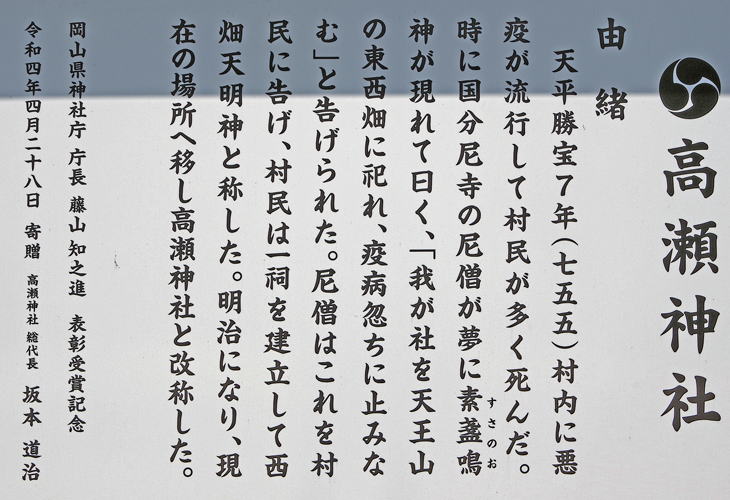 高瀬神社
由緒
天平勝宝7年(七五五)村内に悪
疫が流行して村民が多く死んだ。
時に国分尼寺の尼僧が夢に素盞鳴
すさのお
神が現れて曰く、「我が社を天王山
の東西畑に祀れ、疫病忽ちに止みな
む」と告げられた。尼僧はこれを村
民に告げ、村民は一祠を建立して西
畑天明神と称した。明治になり、現
在の場所へ移し高瀬神社と改称した。
岡山県神社庁 庁長 藤山 知之進 表彰受賞記念
令和四年四月二十八日 寄贈 高瀬神社 総代長 坂本 道治